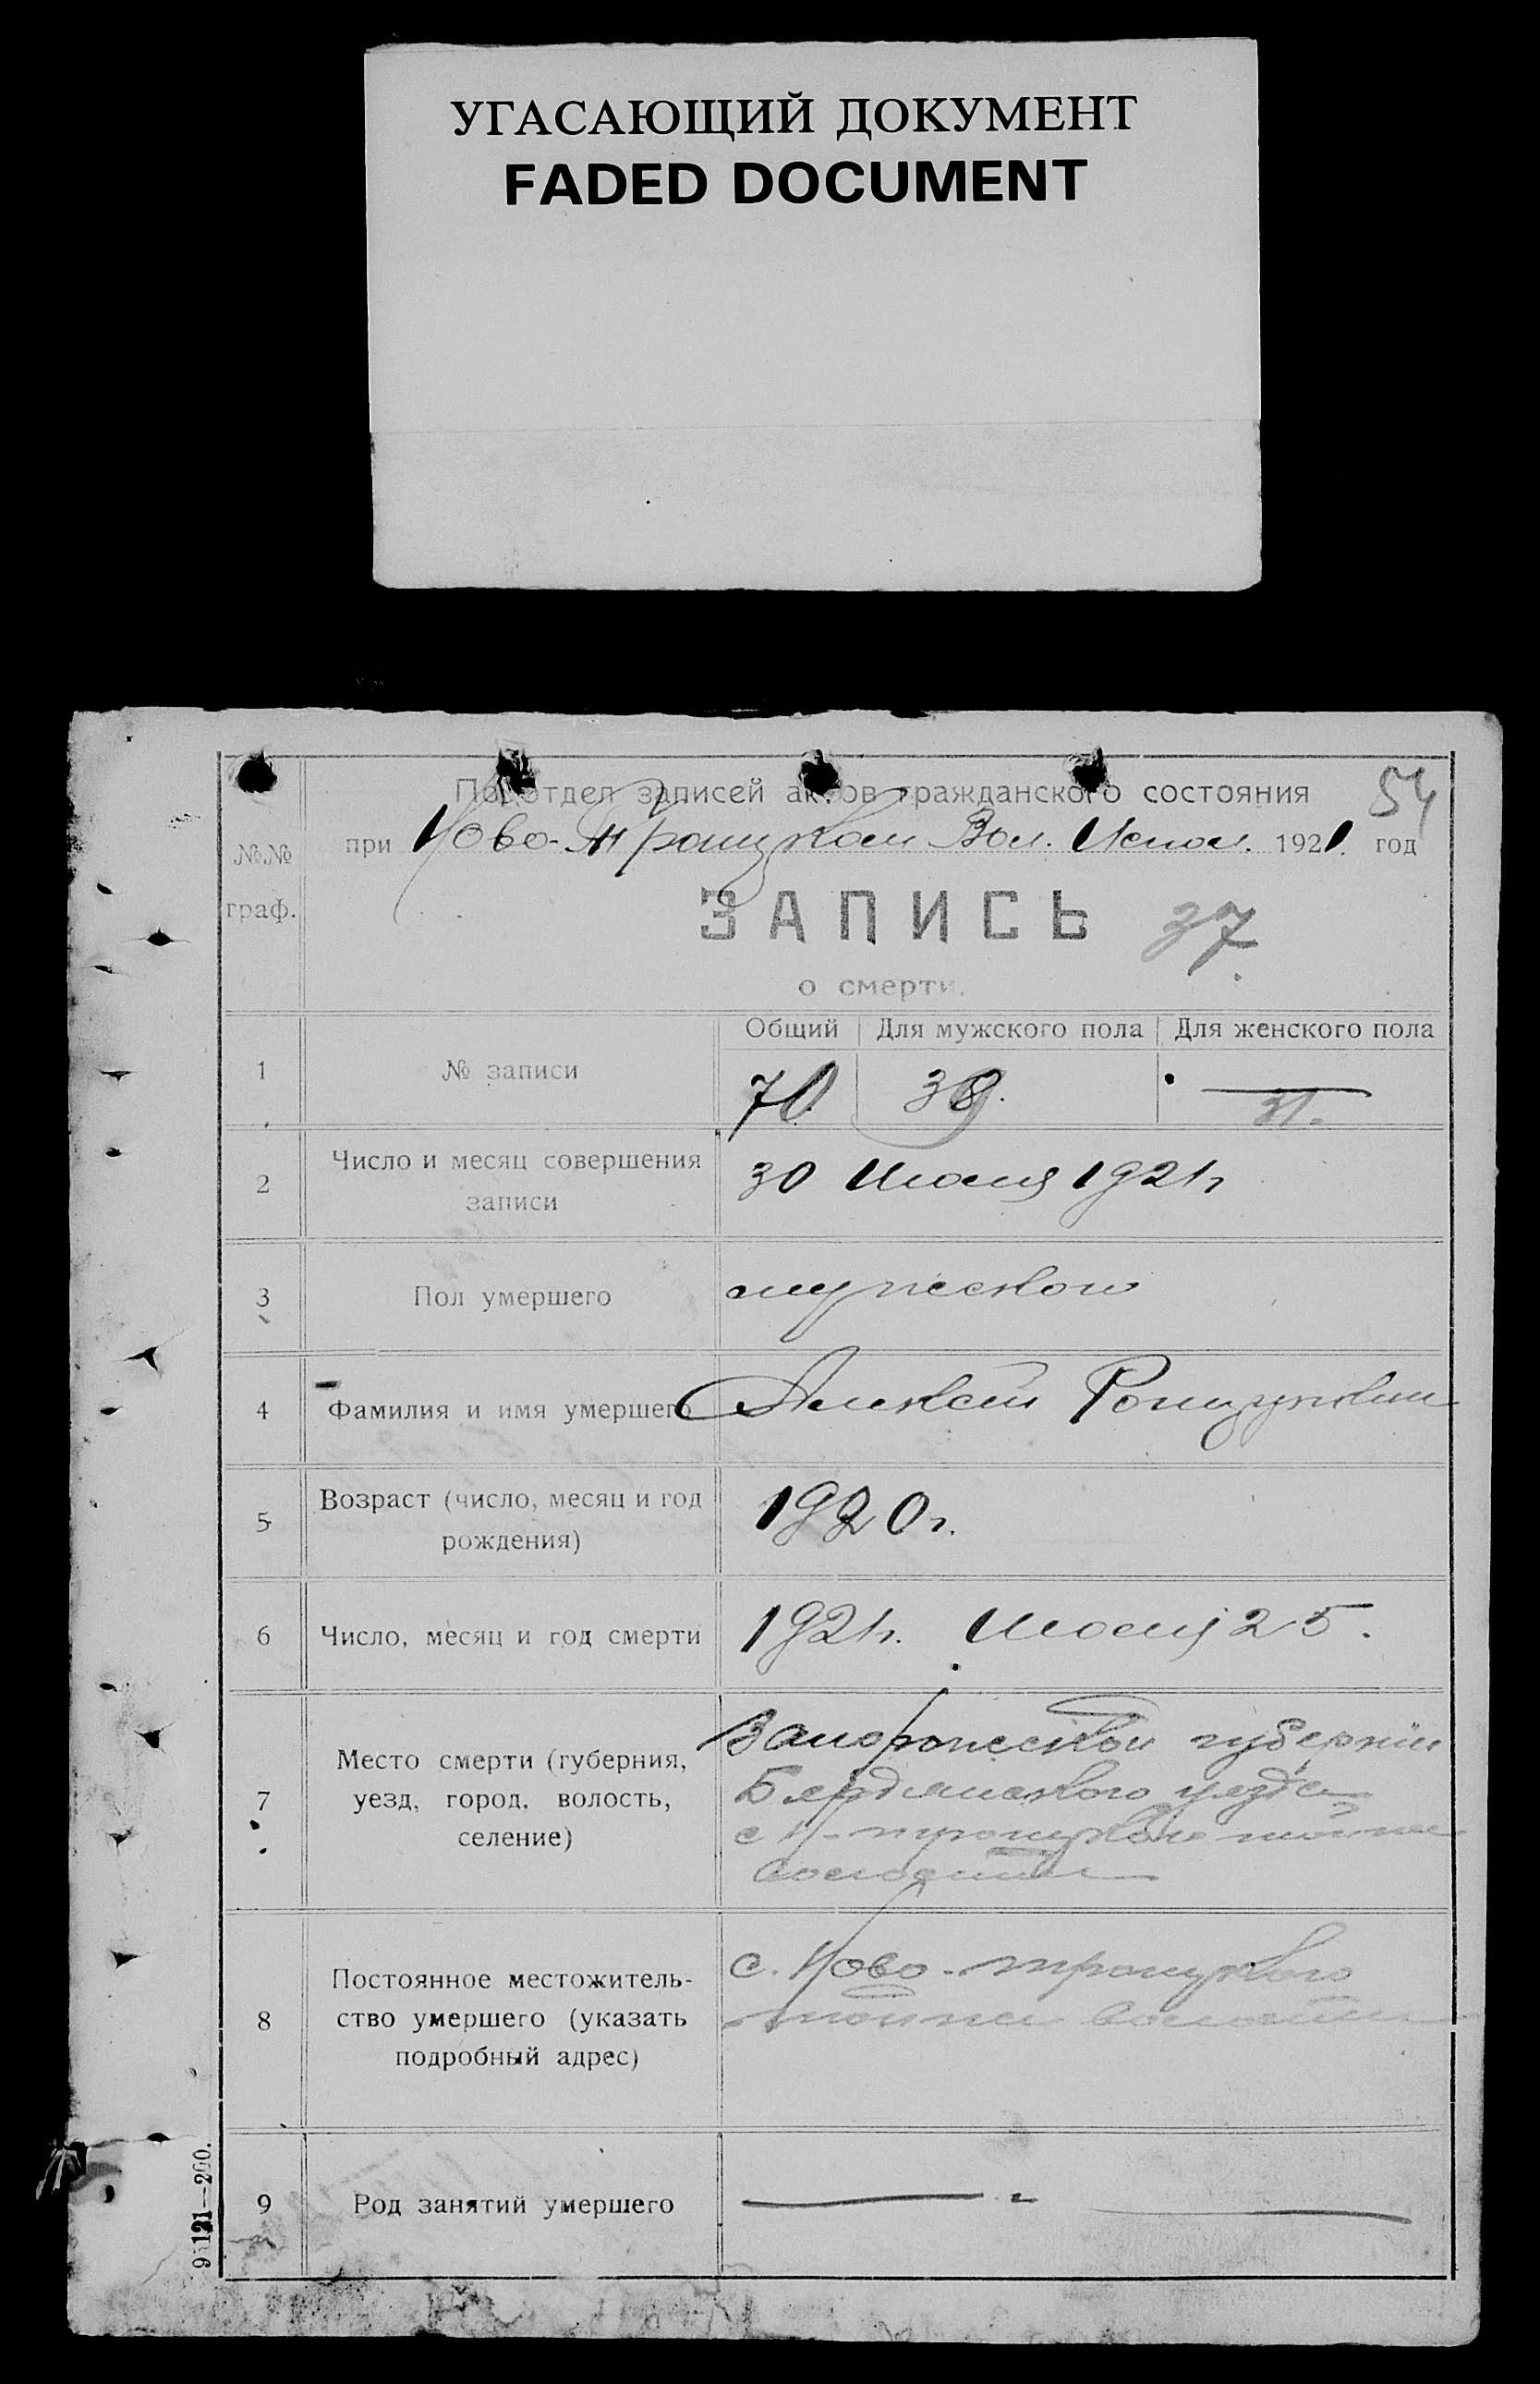 УГАСАЮЩИЙ ДОКУМЕНТ
FADED DOCUMENT
54
Подотдел записей актов гражданского состояния
№№
граф.
при Ново-Троицком Вол. Испол. 1921. год
ЗАПИСЬ 37
о смерти.
Общий Для мужского пола Для женского пола
1 № записи 70. 39. 31.
2 Число и месяц совершения
записи
30 Июля 1921 г
3 Пол умершего мужеского
4 Фамилия и имя умершего Алексей
5 Возраст (число, месяц и год
рождения)
1920 г.
6 Число, месяц и год смерти 1921 г. Июля 25.
7 Место смерти (губерния,
уезд, город, волость,
селение)
Запорожской губернии
Бердянского уезда
с Н-троицкого тойже
волости
8 Постоянное местожитель-
ство умершего (указать
подробный адрес)
с. Ново-троицкого
тойже волости
9 Род занятий умершего
121—200.